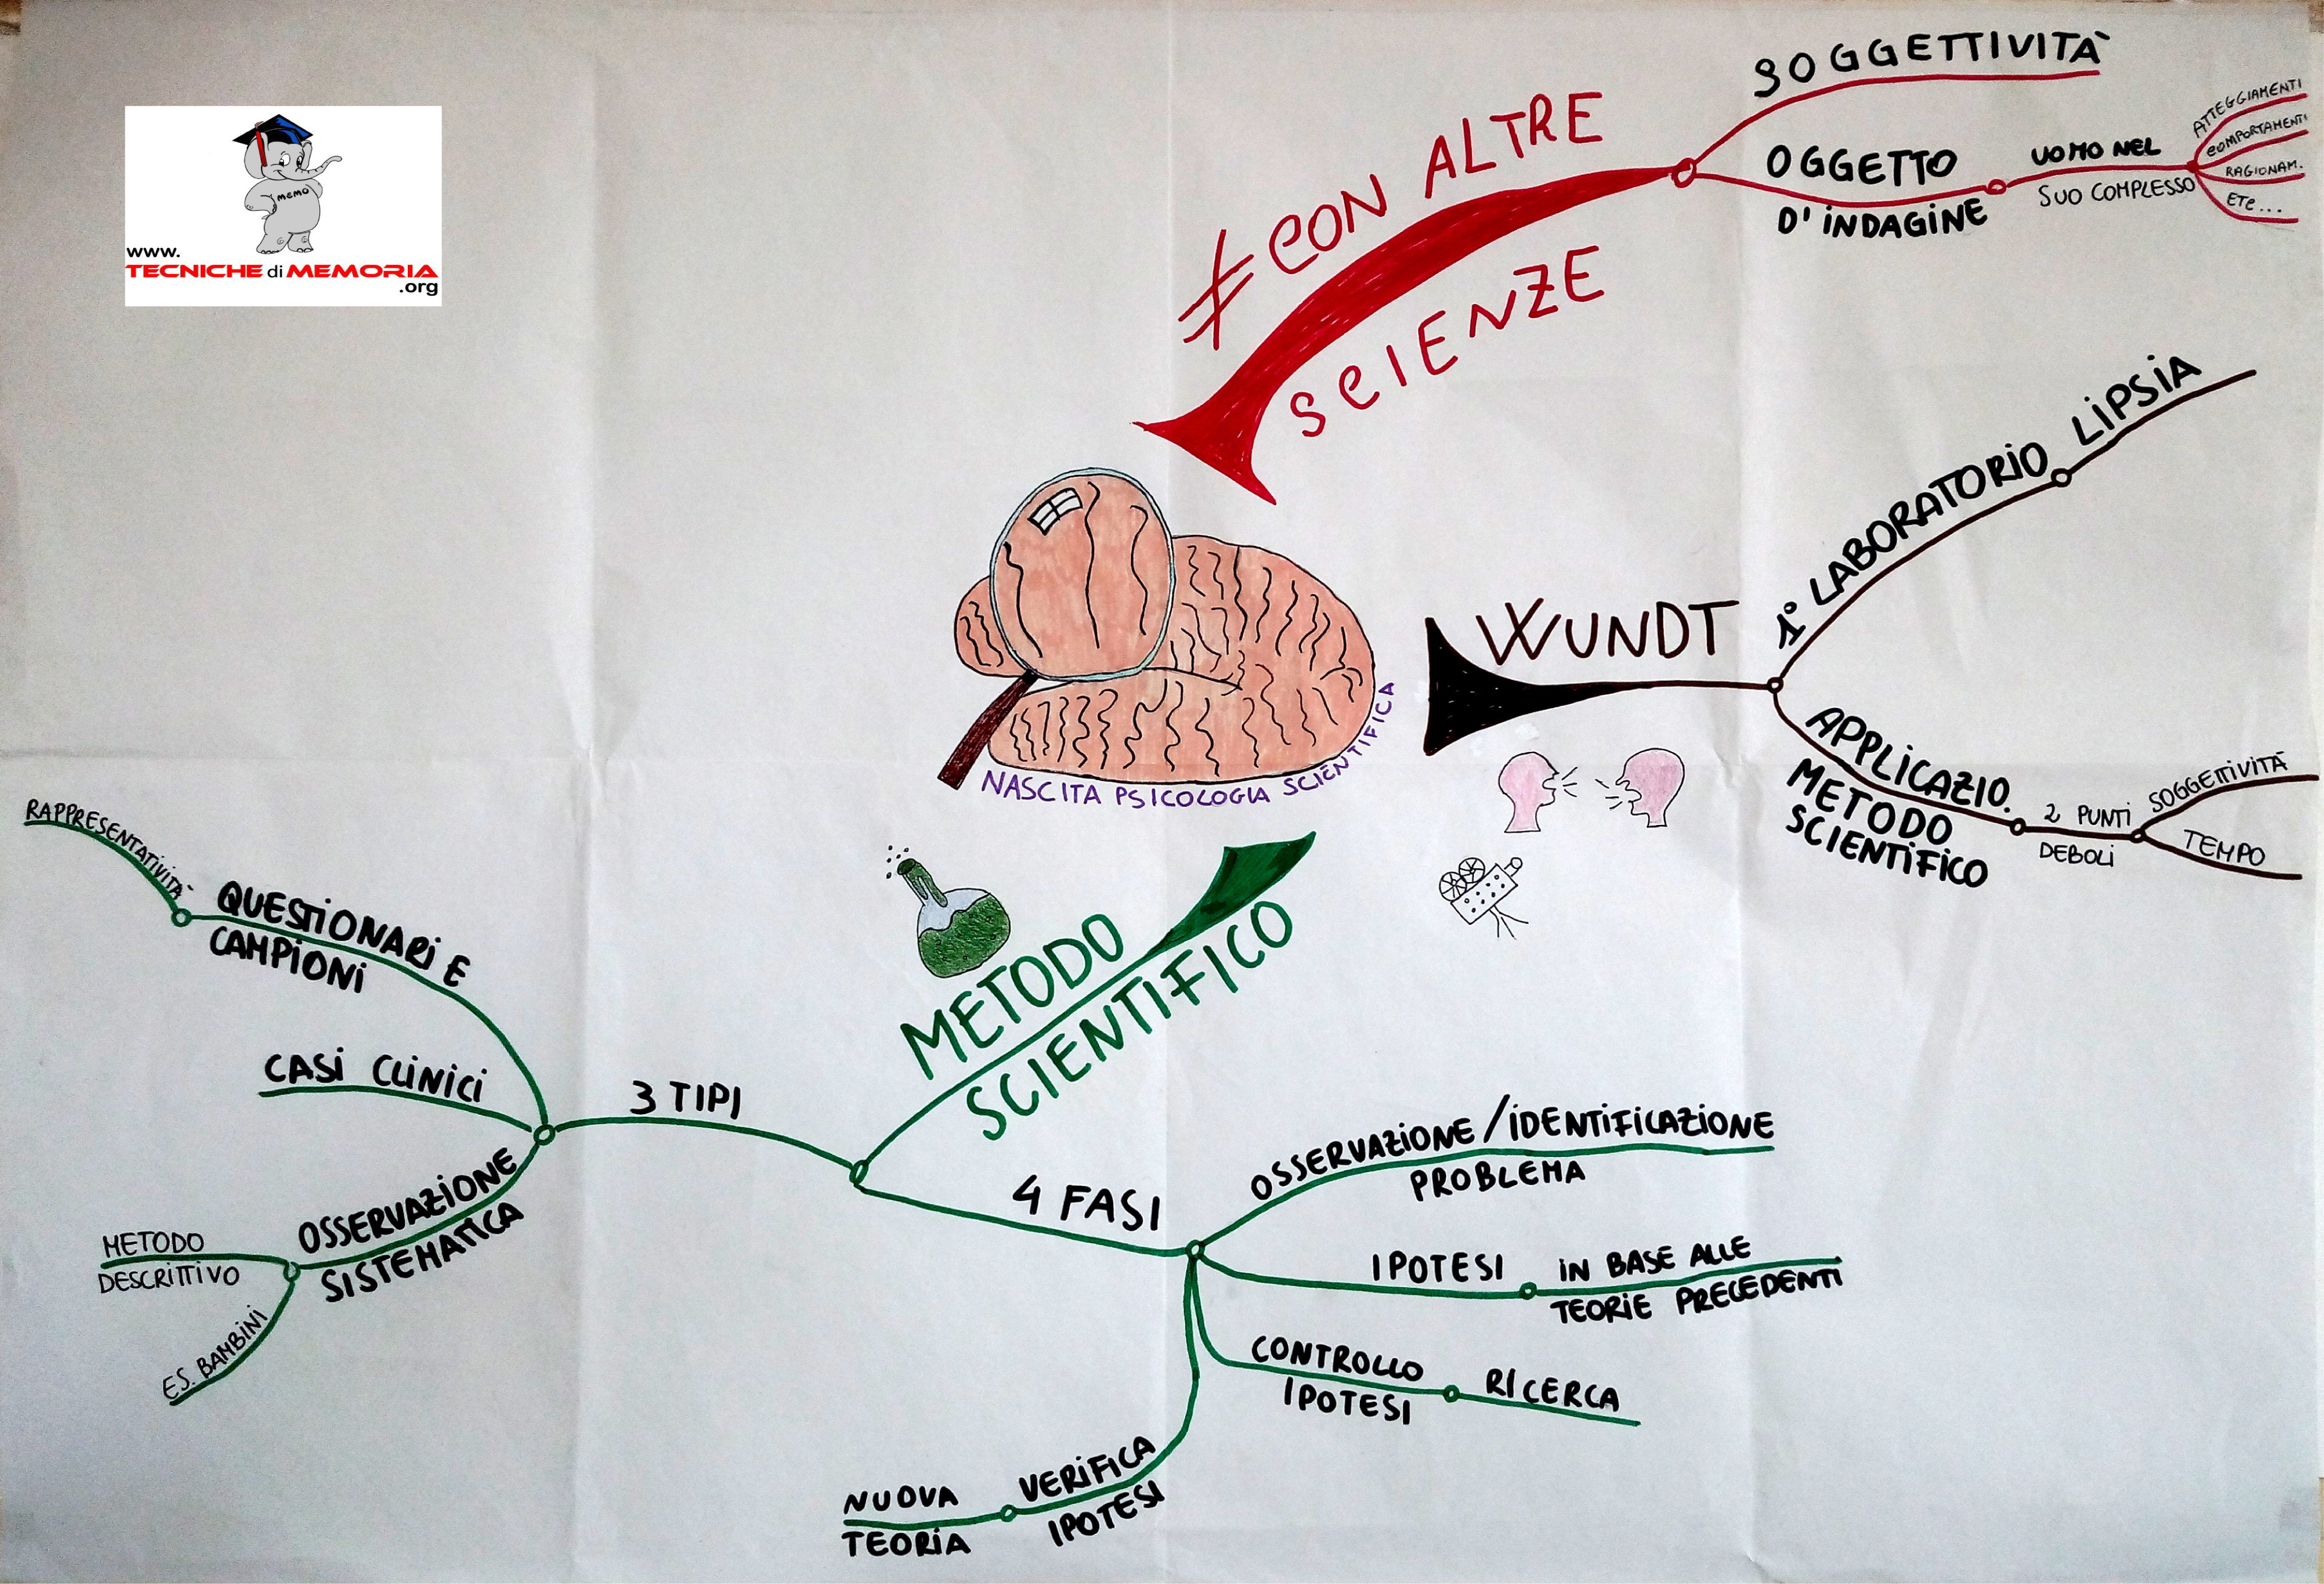 MEMO
www.
TECNICHE di MEMORIA
.org
≠ CON ALTRE
SCIENZE
SOGGETTIVITÀ
OGGETTO
D'INDAGINE
UOMO NEL
SUO COMPLESSO
ATTEGGIAMENTI
COMPORTAMENTI
RAGIONAM.
ETC...
WUNDT
1° LABORATORIO
LIPSIA
APPLICAZIO.
METODO
SCIENTIFICO
2 PUNTI
DEBOLI
SOGGETTIVITÀ
TEMPO
NASCITA PSICOLOGIA SCIENTIFICA
METODO
SCIENTIFICO
4 FASI
OSSERVAZIONE/IDENTIFICAZIONE
PROBLEMA
IPOTESI
IN BASE ALLE
TEORIE PRECEDENTI
CONTROLLO
IPOTESI
RICERCA
VERIFICA
IPOTESI
NUOVA
TEORIA
3 TIPI
OSSERVAZIONE
SISTEMATICA
METODO
DESCRITTIVO
ES. BAMBINI
CASI CLINICI
QUESTIONARI E
CAMPIONI
RAPPRESENTATIVITÀ